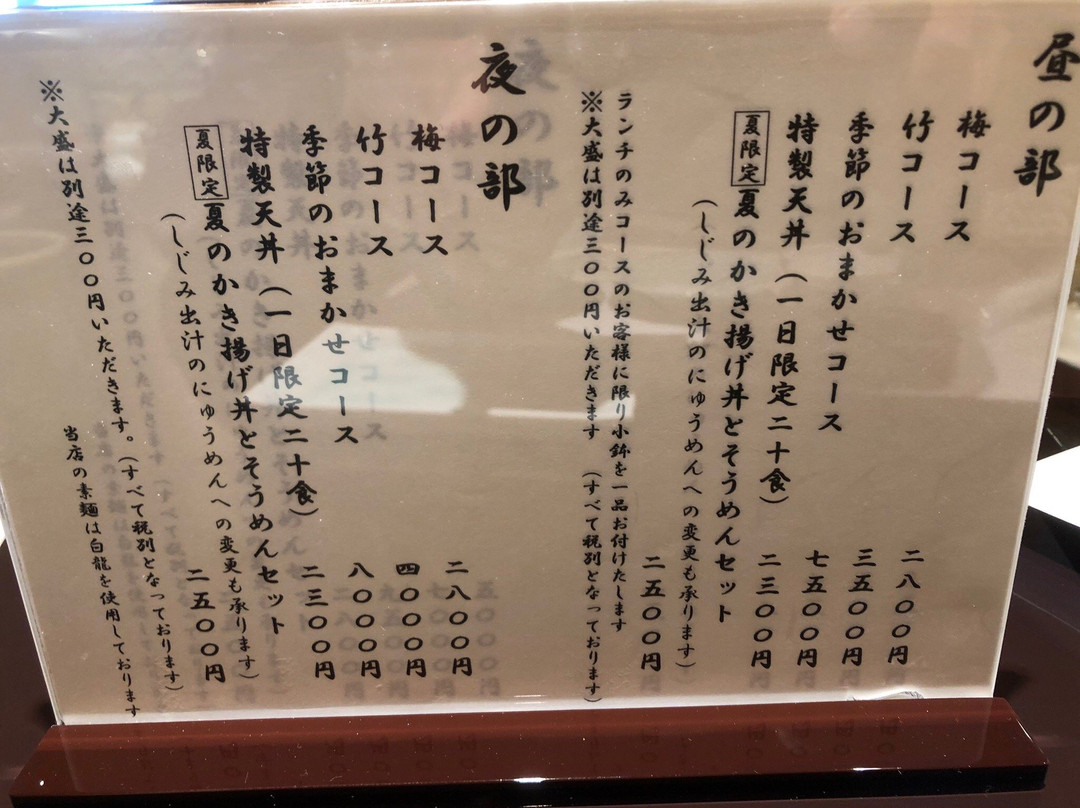 昼の部
梅コース 二八〇〇円
竹コース 三五〇〇円
季節のおまかせコース 七五〇〇円
特製天丼（一日限定二十食） 二三〇〇円
夏限定 夏のかき揚げ丼とそうめんセット
（しじみ出汁のにゅうめんへの変更も承ります） 二五〇〇円
ランチのみコースのお客様に限り小鉢を一品お付けたします
※大盛は別途三〇〇円いただきます （すべて税別となっております）
夜の部
梅コース 二八〇〇円
竹コース 四〇〇〇円
季節のおまかせコース 八〇〇〇円
特製天丼（一日限定二十食） 二三〇〇円
夏限定 夏のかき揚げ丼とそうめんセット
（しじみ出汁のにゅうめんへの変更も承ります） 二五〇〇円
※大盛は別途三〇〇円いただきます。（すべて税別となっております）
当店の素麺は白龍を使用しております